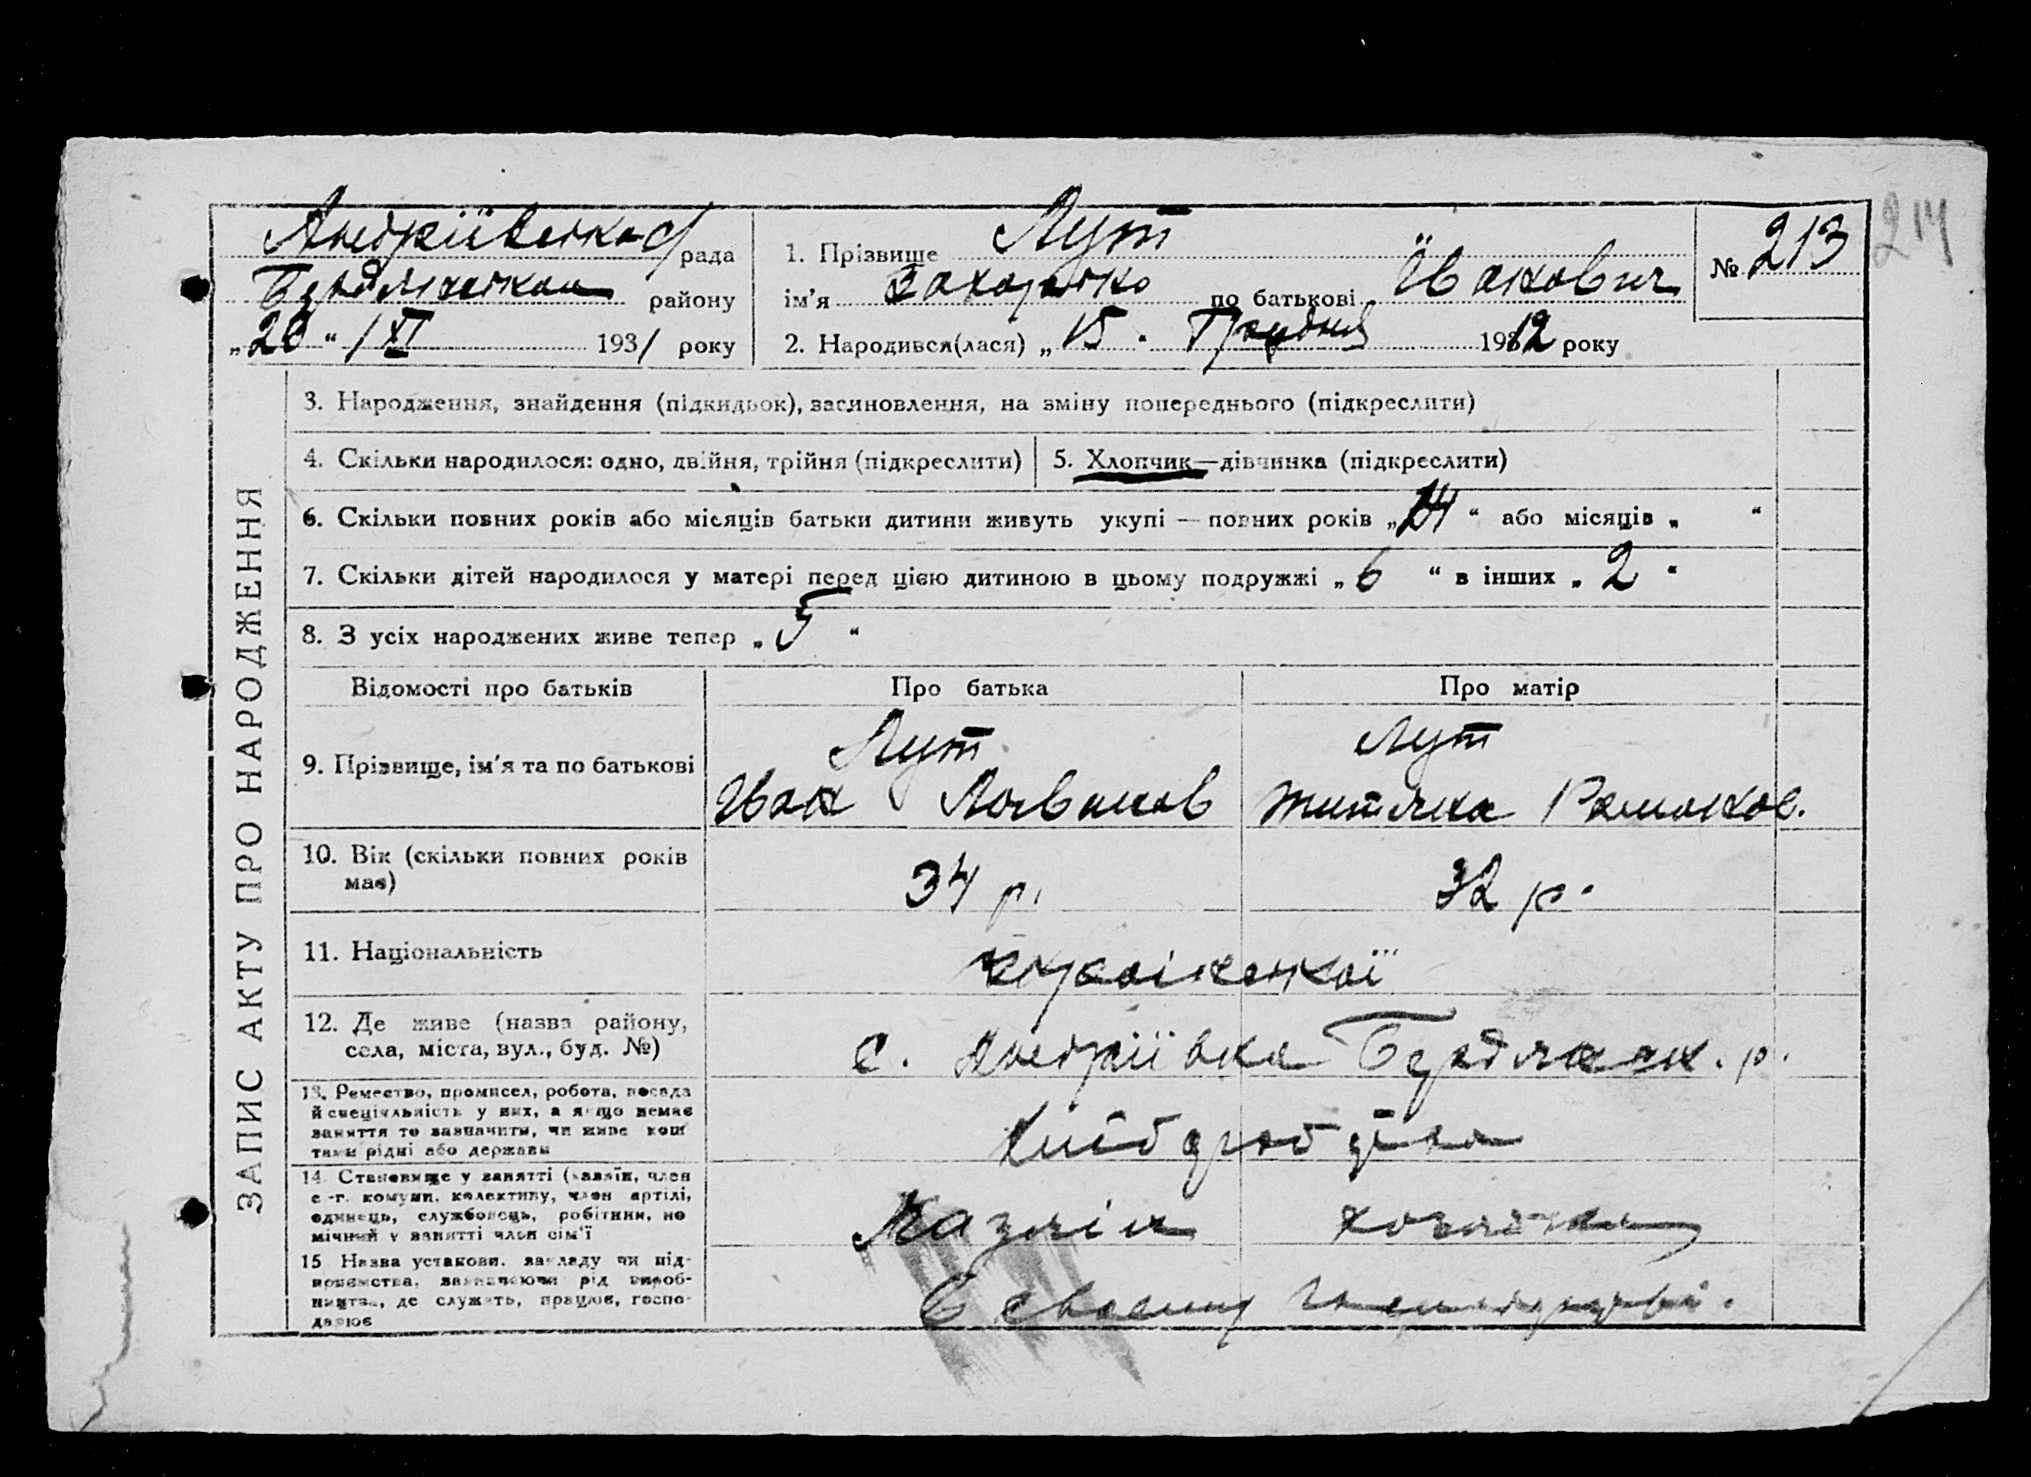 Андріївська с/рада
Бердянського району
„20“ / XI 1931 року
1. Прізвище Лут
ім'я Захарко по батькові Іванович
№ 213
214
2. Народився(лася) „15“ Грудня 1912 року
ЗАПИС АКТУ ПРО НАРОДЖЕННЯ
3. Народження, знайдення (підкидьок), засиновлення, на зміну попереднього (підкреслити)
4. Скільки народилося: одно, двійня, трійня (підкреслити) 5. Хлопчик—дівчинка (підкреслити)
6. Скільки повних років або місяців батьки дитини живуть укупі — повних років „14“ або місяців „ “
7. Скільки дітей народилося у матері перед цією дитиною в цьому подружжі „6“ в інших „2“
8. З усіх народжених живе тепер „5“
Відомості про батьків Про батька Про матір
9. Прізвище, ім'я та по батькові
Лут
Іван
Лут
Роман ков.
10. Вік (скільки повних років
має)
34 р. 32 р.
11. Національність
української
12. Де живе (назва району,
села, міста, вул., буд. №)
с. Андріївка Бердянськ. р.
13. Ремество, промисел, робота, посада
й спеціяльність у них, а якщо немає
заняття то зазначити, чи живе кош
тами рідні або держави
Хліборобство
14. Становище у занятті (хазяїн, член
с.-г. комуни, колективу, член артілі,
одинець, службовець, робітник, по
мічний у занятті член сім'ї
Хазяїн хозяйка
15 Назва установи, закладу чи під-
приємства, зазначаючи рід вироб-
ництва, де служить, працює, госпо-
дарює
В своєму господарстві.